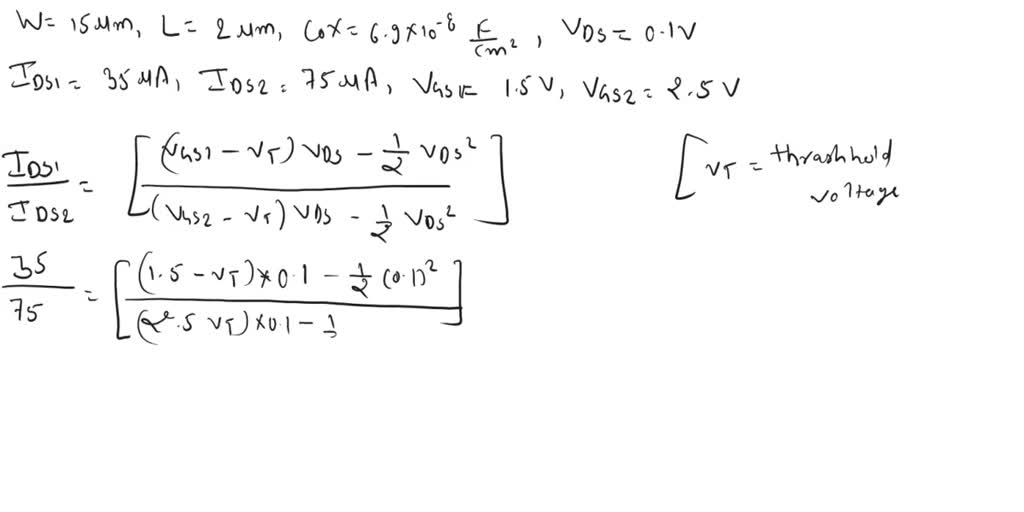 W= 15 μm, L= 2 μm, Cox= 6.9×10⁻⁸ F/cm², VDS = 0.1V
IDS1 = 35 μA, IDS2 = 75 μA, VGS1= 1.5 V, VGS2 = 2.5 V
IDS1/IDS2 = [((VGS1 – VT) VDS – 1/2 VDS²)/((VGS2 – VT) VDS – 1/2 VDS²)] [VT = thrashhold
voltage
35/75 = [((1.5 – VT)×0.1 – 1/2 (0.1)²)/((2.5 VT)×0.1 – 1/